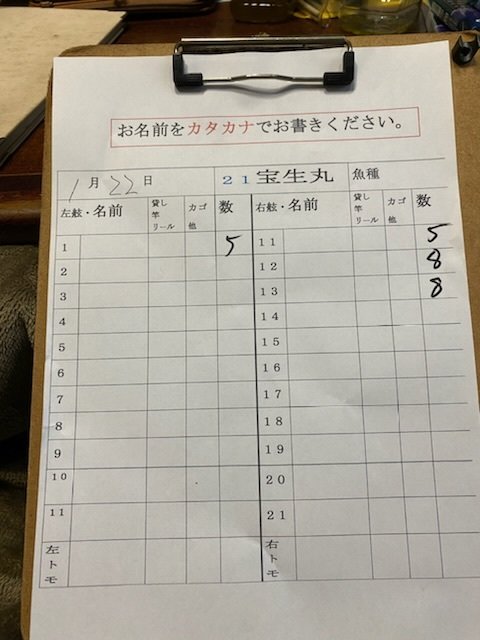 お名前をカタカナでお書きください。
1月22日 21宝生丸 魚種
左舷・名前 貸し竿リール カゴ他 数 右舷・名前 貸し竿リール カゴ他 数
1 5 11 5
2 12 8
3 13 8
4 14
5 15
6 16
7 17
8 18
9 19
10 20
11 21
左トモ 右トモ